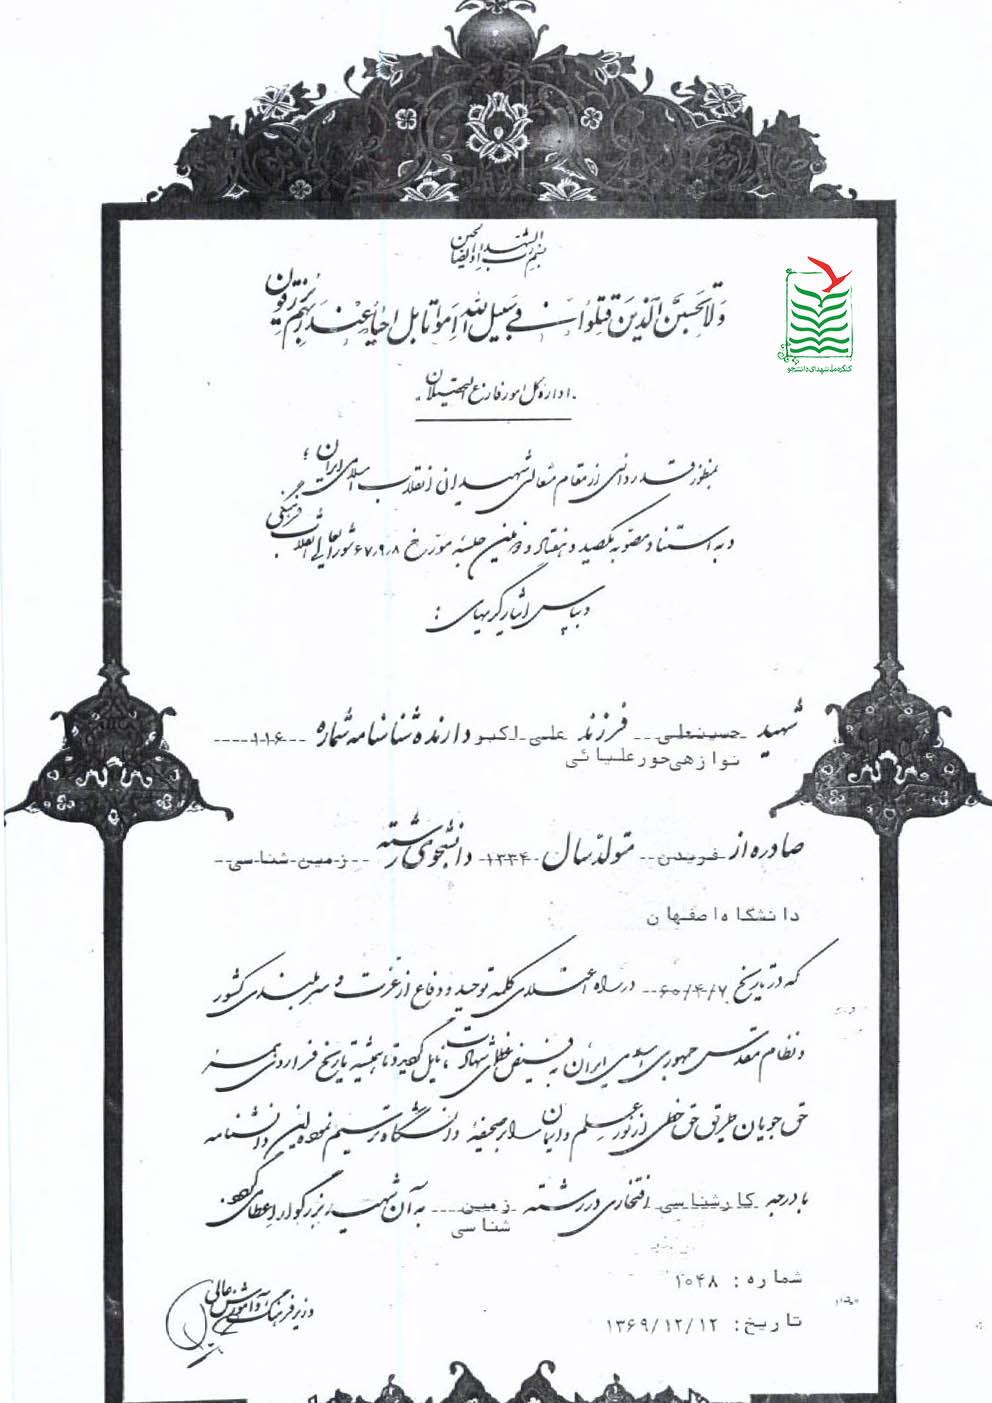 بسم رب الشهداء و الصالحین
وَلا تَحْسَبَنَّ الَّذینَ قُتِلُوا فی سَبیلِ اللهِ اَمْواتا بَلْ اَحْیاءٌ عِنْدَ رَبِّهِمْ یُرْزَقُون
کنگره ملی شهدای دانشجو
اداره کل امور فارغ التحصیلان
بمنظور قدردانی از مقام متعالی شهیدان انقلاب اسلامی ایران ؛
و به استناد مصوبه یکصد و هفتاد و دومین جلسه مورخ ۶۷٫۹٫۸ شورایعالی انقلاب فرهنگی
و بپاس ایثارگریهای :
شهید حسینعلی فرزند علی اکبر دارنده شناسنامه شماره ۱۱۶
نوازهی حورعلیائی
صادره از فریدن متولد سال ۱۳۳۴ دانشجوی رشته زمین شناسی
دانشگاه اصفهان
که در تاریخ ۶۰/۴/۷ در راه اعتلای کلمه توحید و دفاع از عزت و سربلندی کشور
و نظام مقدس جمهوری اسلامی ایران به فیض عظمای شهادت نایل گردید و تا همیشه تاریخ فراروی همه
حق جویان طریق حق خطی از نور علم و ایمان بر صحیفه دانشگاه ترسیم نموده این دانشنامه
با درجه کارشناسی افتخاری در رشته زمین به آن شهید بزرگوار اعطا می گردد.
شناسی
شماره : ۱۰۴۸
تاریخ: ۱۳۶۹/۱۲/۱۲
وزیر فرهنگ و آموزش عالی